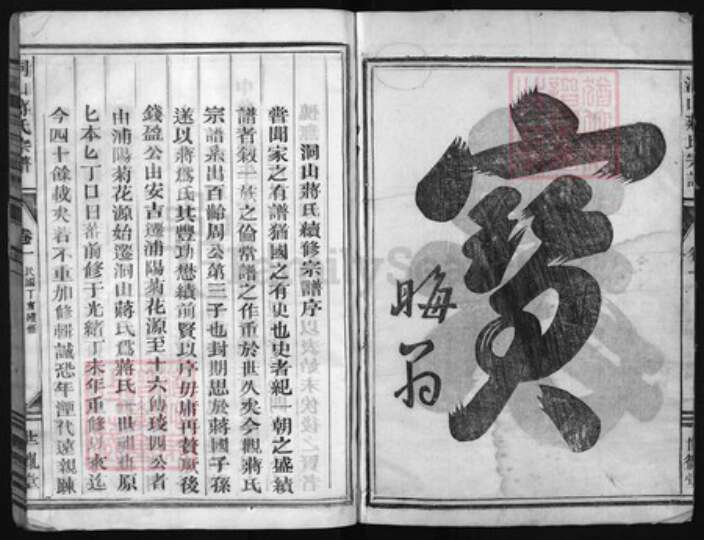 寳
晦翁
洞山蔣氏宗譜
卷一
民國丁亥續修
世龍堂
洞山蔣氏續修宗譜序
嘗聞家之有譜猶國之有史也史者紀一朝之盛績
譜者敘一族之倫常譜之作重於世久矣今觀蔣氏
宗譜系出百齡周公第三子也封期思於蔣國子孫
遂以蔣爲氏其豐功懋績前賢以序毋庸再贅厥後
錢盈公由安吉遷浦陽菊花源至十六傳琰四公者
由浦陽菊花源始遷洞山蔣氏爲蔣氏一世祖也原
今四十餘載矣若不重加修輯誠恐年湮代遠親踈